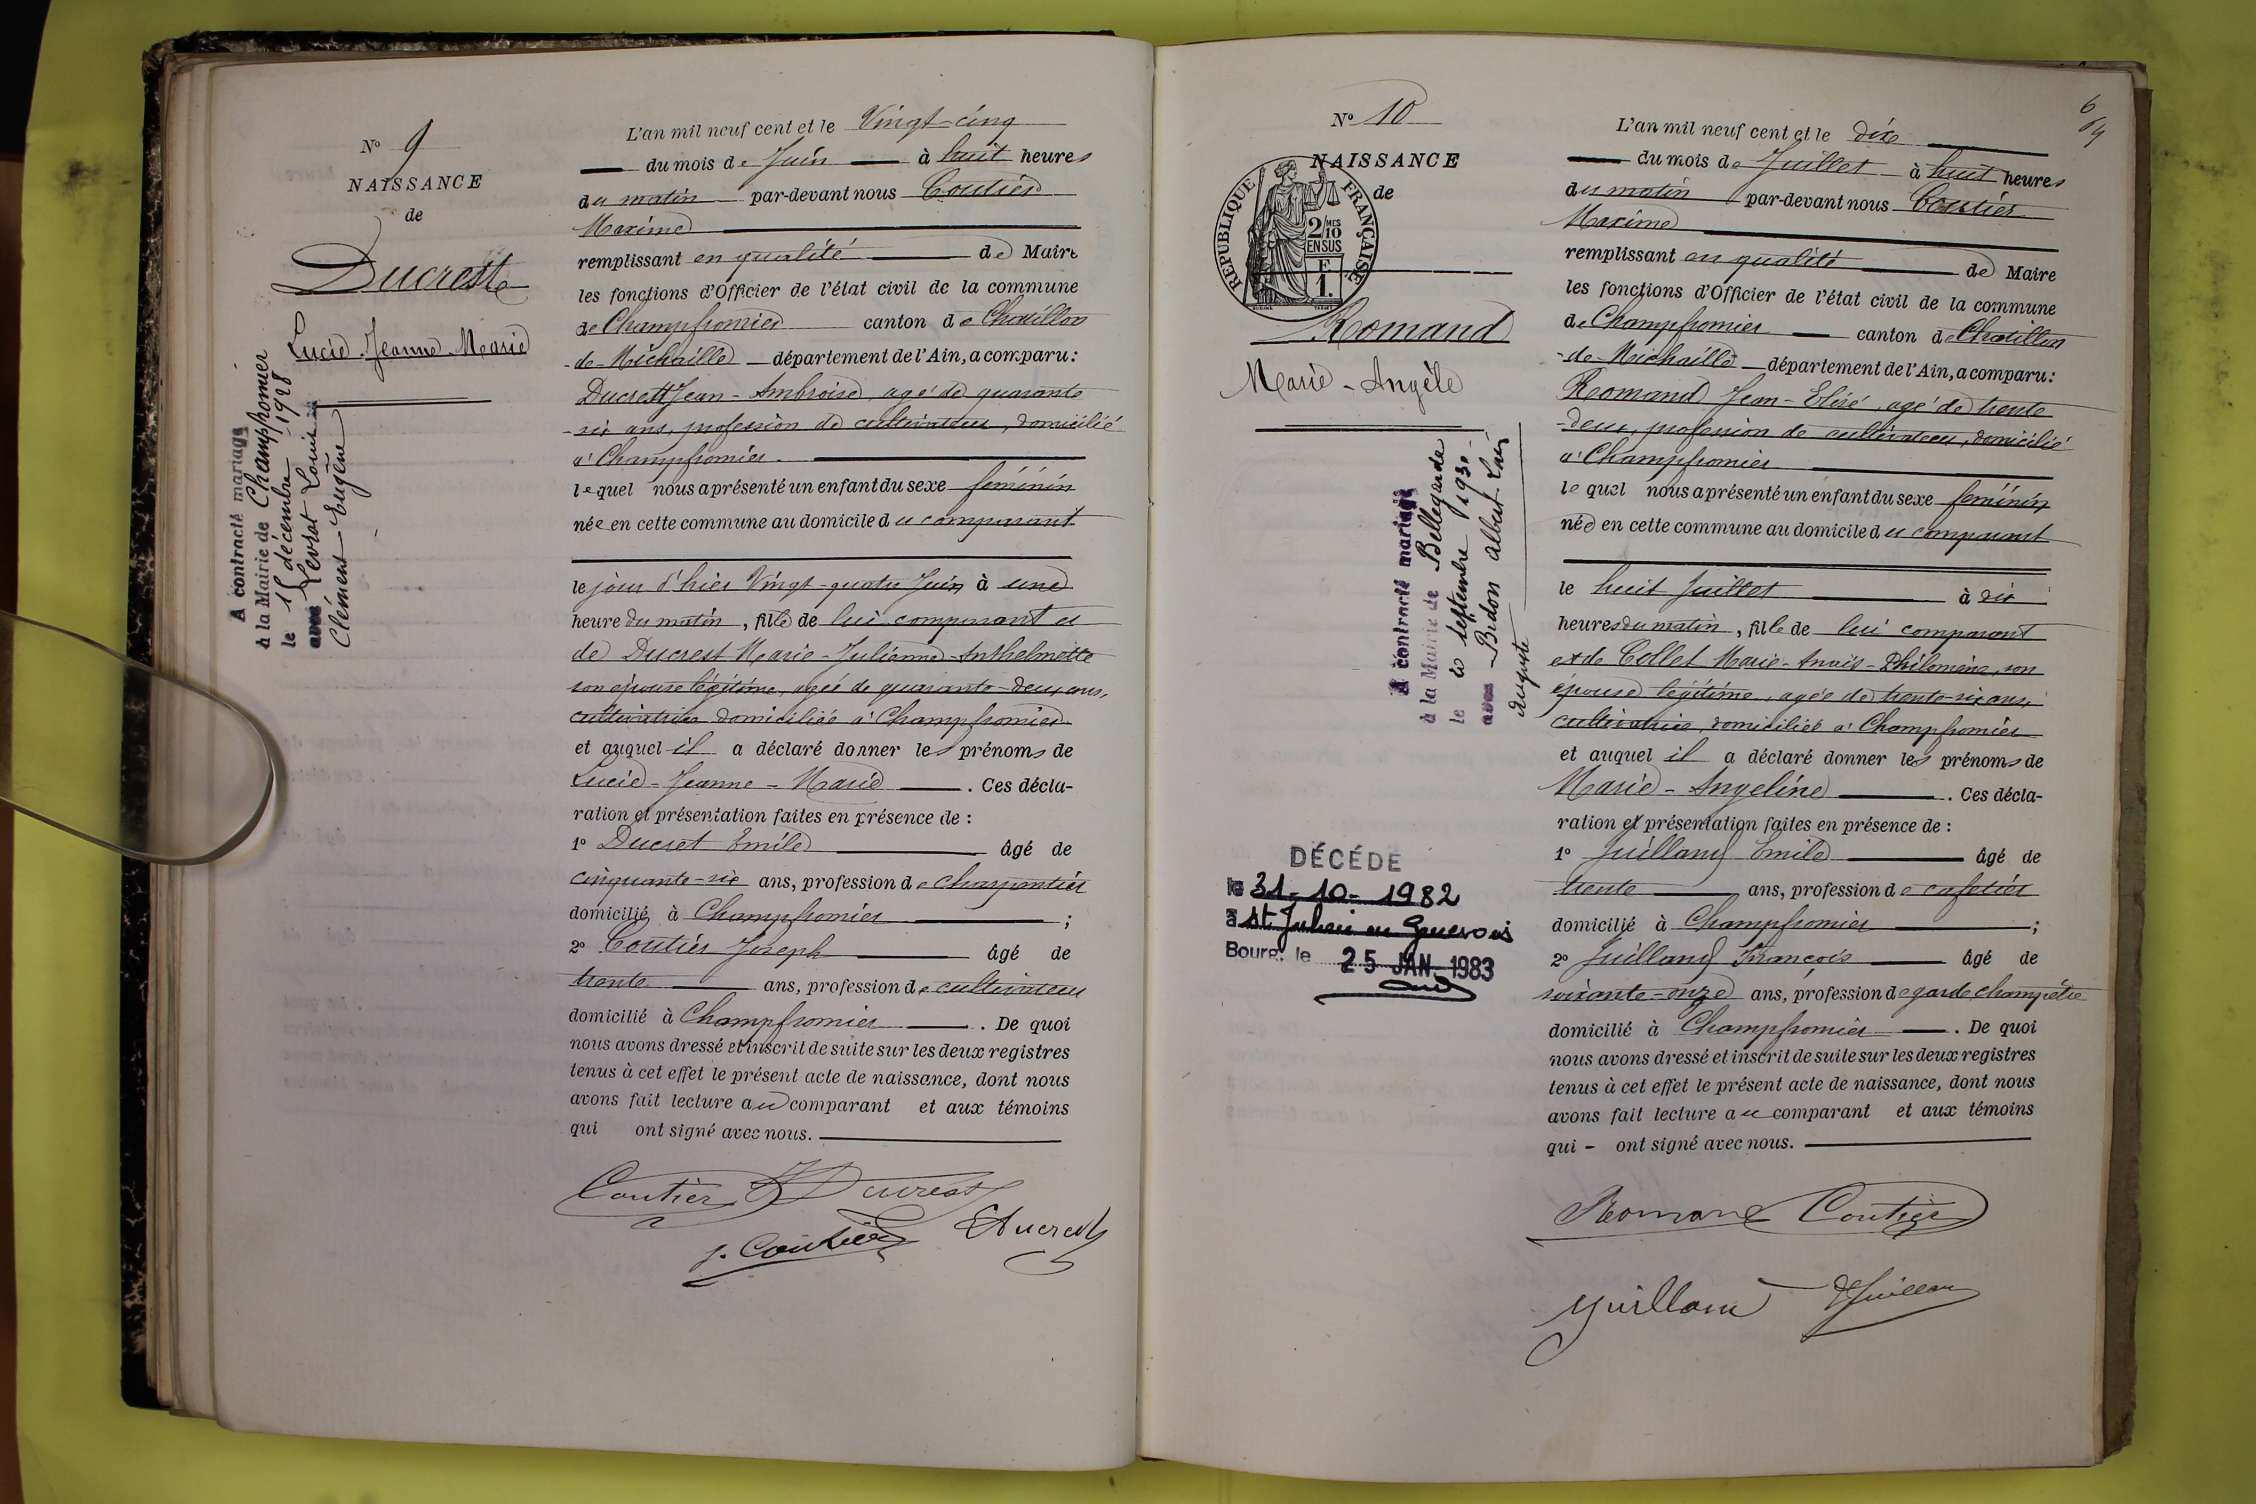 N° 9
NAISSANCE
de
Ducrest
Lucie Jeanne Marie
A contracté mariage
à la Mairie de Champfromier
le 15 décembre 1928
avec Levrat Louis
Clément Eugène
L'an mil neuf cent et le Vingt-cinq
du mois de Juin à huit heures
du matin par-devant nous Coutier
Maxime
remplissant en qualité de Maire
les fonctions d'Officier de l'état civil de la commune
de Champfromier canton de Chatillon
de Michaille département de l'Ain, a comparu :
Ducrest Jean-Ambroise, agé de quarante
-six ans, profession de cultivateur, domicilié
à Champfromier.
lequel nous a présenté un enfant du sexe féminin
née en cette commune au domicile du comparant
le jour d'hier Vingt-quatre Juin à une
heure du matin, fille de lui comparant et
de Ducrest Marie-Julienne-Anthelmette
son épouse légitime, agée de quarante-deux ans,
cultivatrice domiciliée à Champfromier
et auquel il a déclaré donner les prénoms de
Lucie-Jeanne-Marie. Ces décla-
ration et présentation faites en présence de :
1° Ducret Emile âgé de
cinquante-six ans, profession de charpentier
domicilié à Champfromier ;
2° Coutier Joseph âgé de
trente ans, profession de cultivateur
domicilié à Champfromier. De quoi
nous avons dressé et inscrit de suite sur les deux registres
tenus à cet effet le présent acte de naissance, dont nous
avons fait lecture au comparant et aux témoins
qui ont signé avec nous.
Coutier Ducrest
J. Coutier Ducrest
6
N° 10
NAISSANCE
de
REPUBLIQUE FRANÇAISE
2/10 MES
EN SUS
F
1.
Romand
Marie-Angèle
A contracté mariage
à la Mairie de Bellegarde
le septembre 1930
avec Bidon Albert
Auguste
DÉCÉDE
le 31-10-1982
à St Julien en Genevois
Bourg, le 25 JAN. 1983
L'an mil neuf cent et le dix
du mois de Juillet à huit heures
du matin par-devant nous Coutier
Maxime
remplissant en qualité de Maire
les fonctions d'Officier de l'état civil de la commune
de Champfromier canton de Chatillon
-de-Michaille département de l'Ain, a comparu :
Romand Jean- agé de trente
-deux, profession de cultivateur, domicilié
à Champfromier
lequel nous a présenté un enfant du sexe féminin
née en cette commune au domicile du comparant
le huit Juillet à six
heures du matin, fille de lui comparant
et de Collet Marie-Anaïs-Philomène, son
épouse légitime, agée de trente-six ans,
cultivatrice, domiciliée à Champfromier
et auquel il a déclaré donner les prénoms de
Marie-Angéline. Ces décla-
ration et présentation faites en présence de :
1° Juilland Emile âgé de
trente ans, profession de cafetier
domicilié à Champfromier ;
2° Juilland François âgé de
soixante-onze ans, profession de garde champêtre
domicilié à Champfromier. De quoi
nous avons dressé et inscrit de suite sur les deux registres
tenus à cet effet le présent acte de naissance, dont nous
avons fait lecture au comparant et aux témoins
qui - ont signé avec nous.
Romand Coutier